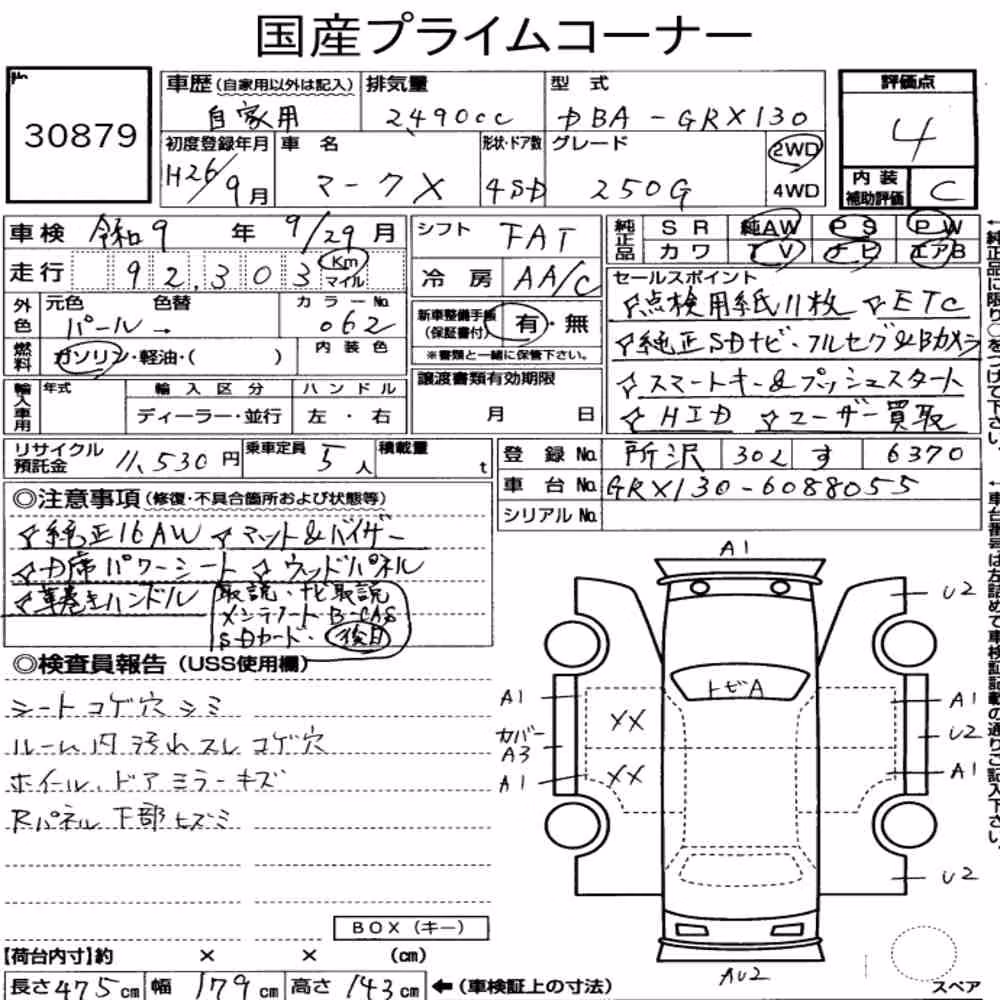 国産プライムコーナー
No.
30879
車歴(自家用以外は記入)
自家用
排気量
2490cc
型式
DBA-GRX130
評価点
4
内装補助評価
C
初度登録年月
H26/9月
車名
マークX
形状・ドア数
4SD
グレード
250G
2WD
4WD
車検 令和9年9/29月
シフト FAT
純正品
SR 純AW PS PW
カワ TV ナビ エアB
走行 92,303 Km マイル
冷房 AA/C
セールスポイント
☆点検用紙11枚 ☆ETC
☆純正SDナビ・フルセグ&Bカメラ
☆スマートキー&プッシュスタート
☆HID ☆ユーザー買取
外色
元色 色替 カラーNo.
パール→ 062
新車整備手帳(保証書付) 有・無
※書類と一緒に保管下さい。
燃料 ガソリン・軽油・( )
内装色
輸入車用
年式 輸入区分 ハンドル
ディーラー・並行 左・右
譲渡書類有効期限
月 日
リサイクル預託金 11,530円
乗車定員 5人
積載量 t
登録No. 所沢 302 す 6370
車台No. GRX130-6088055
シリアルNo.
◎注意事項(修復・不具合箇所および状態等)
☆純正16AW ☆マット&バイザー
☆D席パワーシート ☆ウッドパネル
☆革巻きハンドル
取説・ナビ取説
メンテノート B-CAS
SDカード・後日
◎検査員報告(USS使用欄)
シートコゲ穴シミ
ルーム内汚れスレコゲ穴
ホイール、ドアミラーキズ
Rパネル下部ヒズミ
BOX(キー)
【荷台内寸】約 × × (cm)
長さ475cm 幅179cm 高さ143cm ←(車検証上の寸法)
A1
U2
トビA
A1
XX
A1
カバーA3
U2
A1
XX
A1
U2
AU2
スペア
←純正品に限り○をつけて下さい。
←車台番号は左詰めで車検証記載の通りご記入下さい。